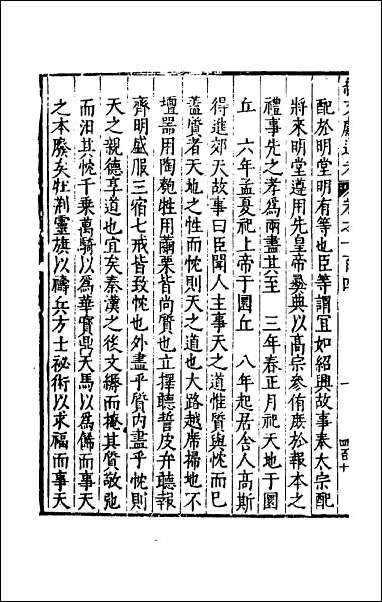 續文獻通考　卷之一百四
配於明堂明有等也臣等謂宜如紹興故事奉太宗配
將來明堂遵用先皇帝彝典以高宗參侑庶於報本之
禮事先之孝爲兩盡其至　三年春正月祀天地于圜
丘　六年孟夏祀上帝于圜丘　八年起居舍人高斯
得進郊天故事曰臣聞人主事天之道惟質與忱而巳
蓋質者天地之性而忱則天之道也大路越席掃地不
壇器用陶匏牲用繭栗皆尚質也立擇聽誓皮弁聽報
齊明盛服三宿七戒皆致忱也外盡乎質内盡乎忱則
天之親德享道也宜矣秦漢之後文縟而掩其質敬弛
而汨其忱千乘萬騎以爲華寶鼎天馬以爲備而事天
之本廢矣牡荆靈旗以禱兵方士祕術以求福而事天